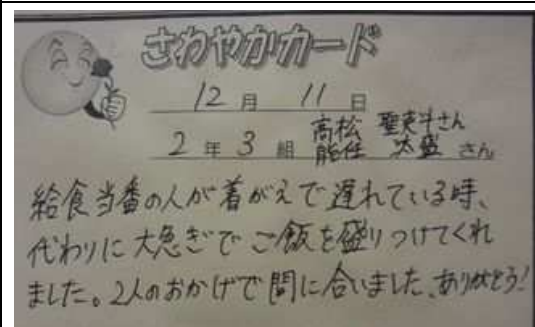 さわやかカード
12月 11日
2年3組 高松 聖英斗さん
能任 大盛さん
給食当番の人が着がえで遅れている時、
代わりに大急ぎでご飯を盛りつけてくれ
ました。2人のおかげで間に合いました、ありがとう!